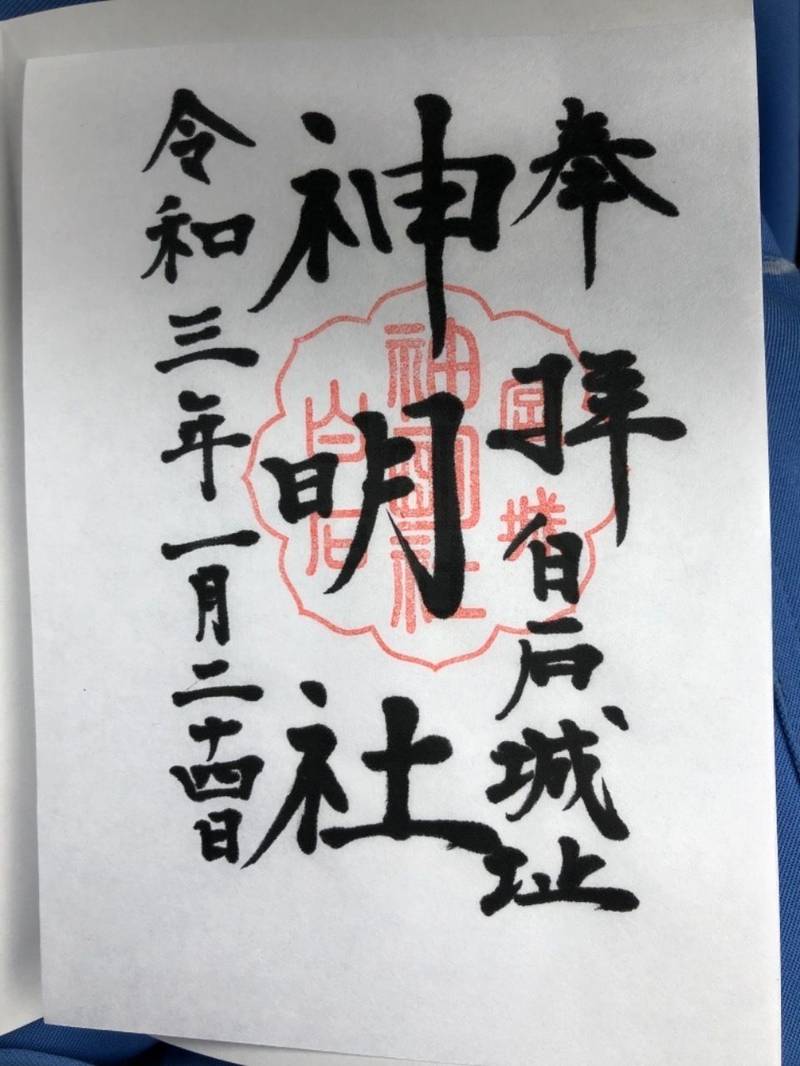 奉拝 白石城址
神明社
令和三年一月二十四日
神明社
白石